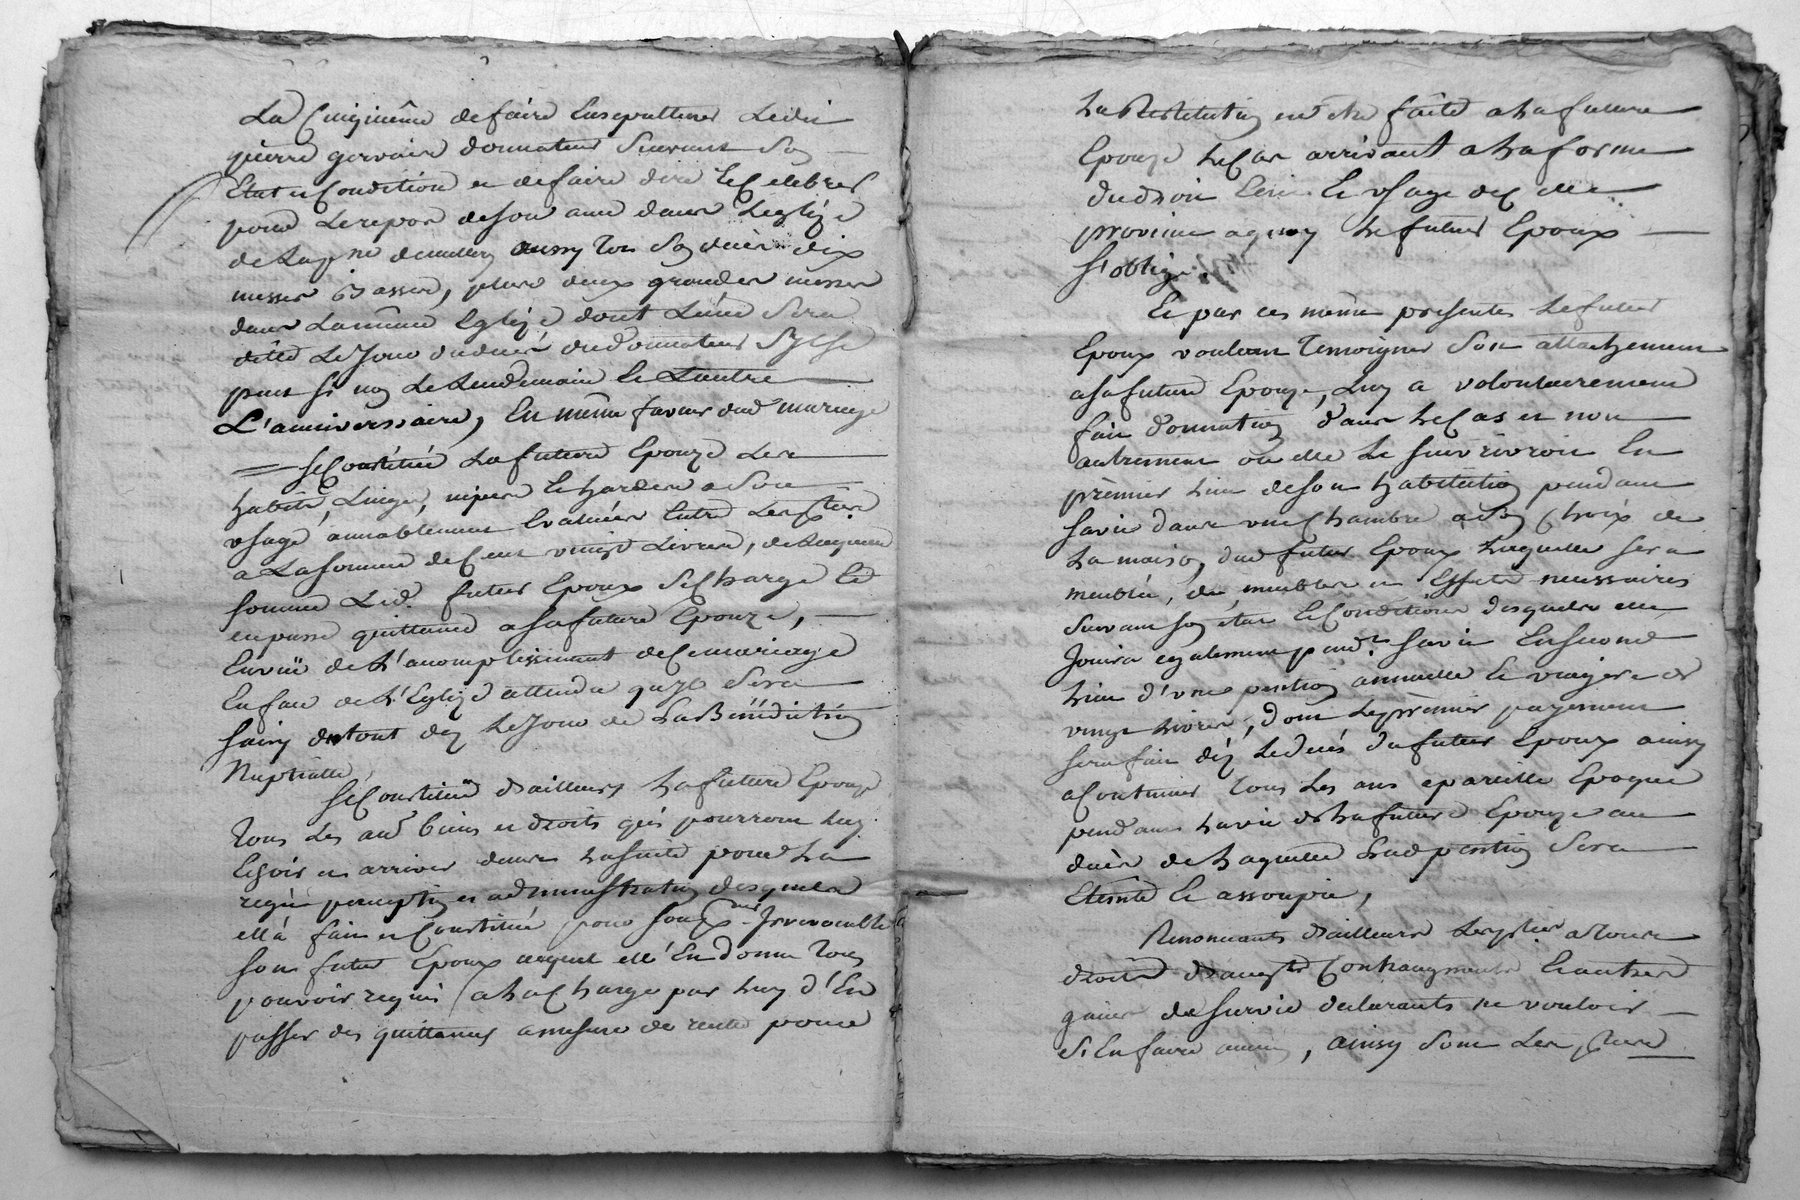 La Cinquième defaire Ensepulturer Ledit
pierre gervais donnateur Suivant Son
Etat et Condition et defaire dire Et Celebrer
pour Le repos deson ame dans L'eglize
de demullen aussy tot Son décès dix
messes basses, plus deux grandes messes
dans La même Eglize dont L'une Sera
ditte Le Jour dudécés dudonnateur Sy Ce
peut Si non Le Lendemain Et L'autre
L'anniversaire, En même faveur dud mariage
Se Constitué La future Epouze Ses
habits, Linges, nipes Et hardes a Son
usage amiablement Evalués Entre Les pties
a La somme de Cent vingt Livres, de Laquelle
somme Led. futur Epoux Se Charge Et
en passe quittance a sa future Epouze,
En vüe de L'acomplissement de Ce mariage
En face de L'Eglize attendu qu'il Sera
saizy du tout dez Le Jour de La Bénédiction
Nuptialle,
Se Constitue d'ailleurs La future Epouze
Tous Les aud biens et droits qui pourront Luy
Echoir et arriver dans La suitte pour La
regie perception et administration desquels
ell'a fait et Constitué pour son pr Irrevocable
son futur Epoux auquel ell'En donne Tous
pouvoir requis a La Charge par Luy d'En
passer des quittances a mesure de recette pour
La Restitution en être faitte a La future
Epouze Le Cas arrivant a La forme
du droit Ecrit Et usage de Cette
province a quoy Le futur Epoux
s'oblige.
Et par ces même presentes Le futur
Epoux voulant Temoigner Son attachement
a sa future Epouze, Luy a volontairement
fait donnation dans Le Cas et non
autrement ou elle Le survivroit En
prémier Lieu de son habitation pendant
sa vie dans une Chambre a Son Choix de
La maison dud futur Epoux Laquelle sera
meublée, de meubles et Effets necessaires
Suivant son état Et Condition desquels elle
Jouira egalement pend.t sa vie En second
Lieu d'une pention annuelle Et viagere de
vingt Livres, dont Le prèmier payement
sera fait déz Le decés du futur Epoux ainsy
a Continuer Tous Les ans a pareille Epoque
pendant La vie de La future Epouze au
décès de Laquelle Lad pention Sera
Eteinte Et assoupie,
Renonceants d'ailleurs Les pties a Tous
droits d'augts Contraugments Et autres
gains de survie declarants ne vouloir
S'En faire aucun, ainsy Sont Les pties